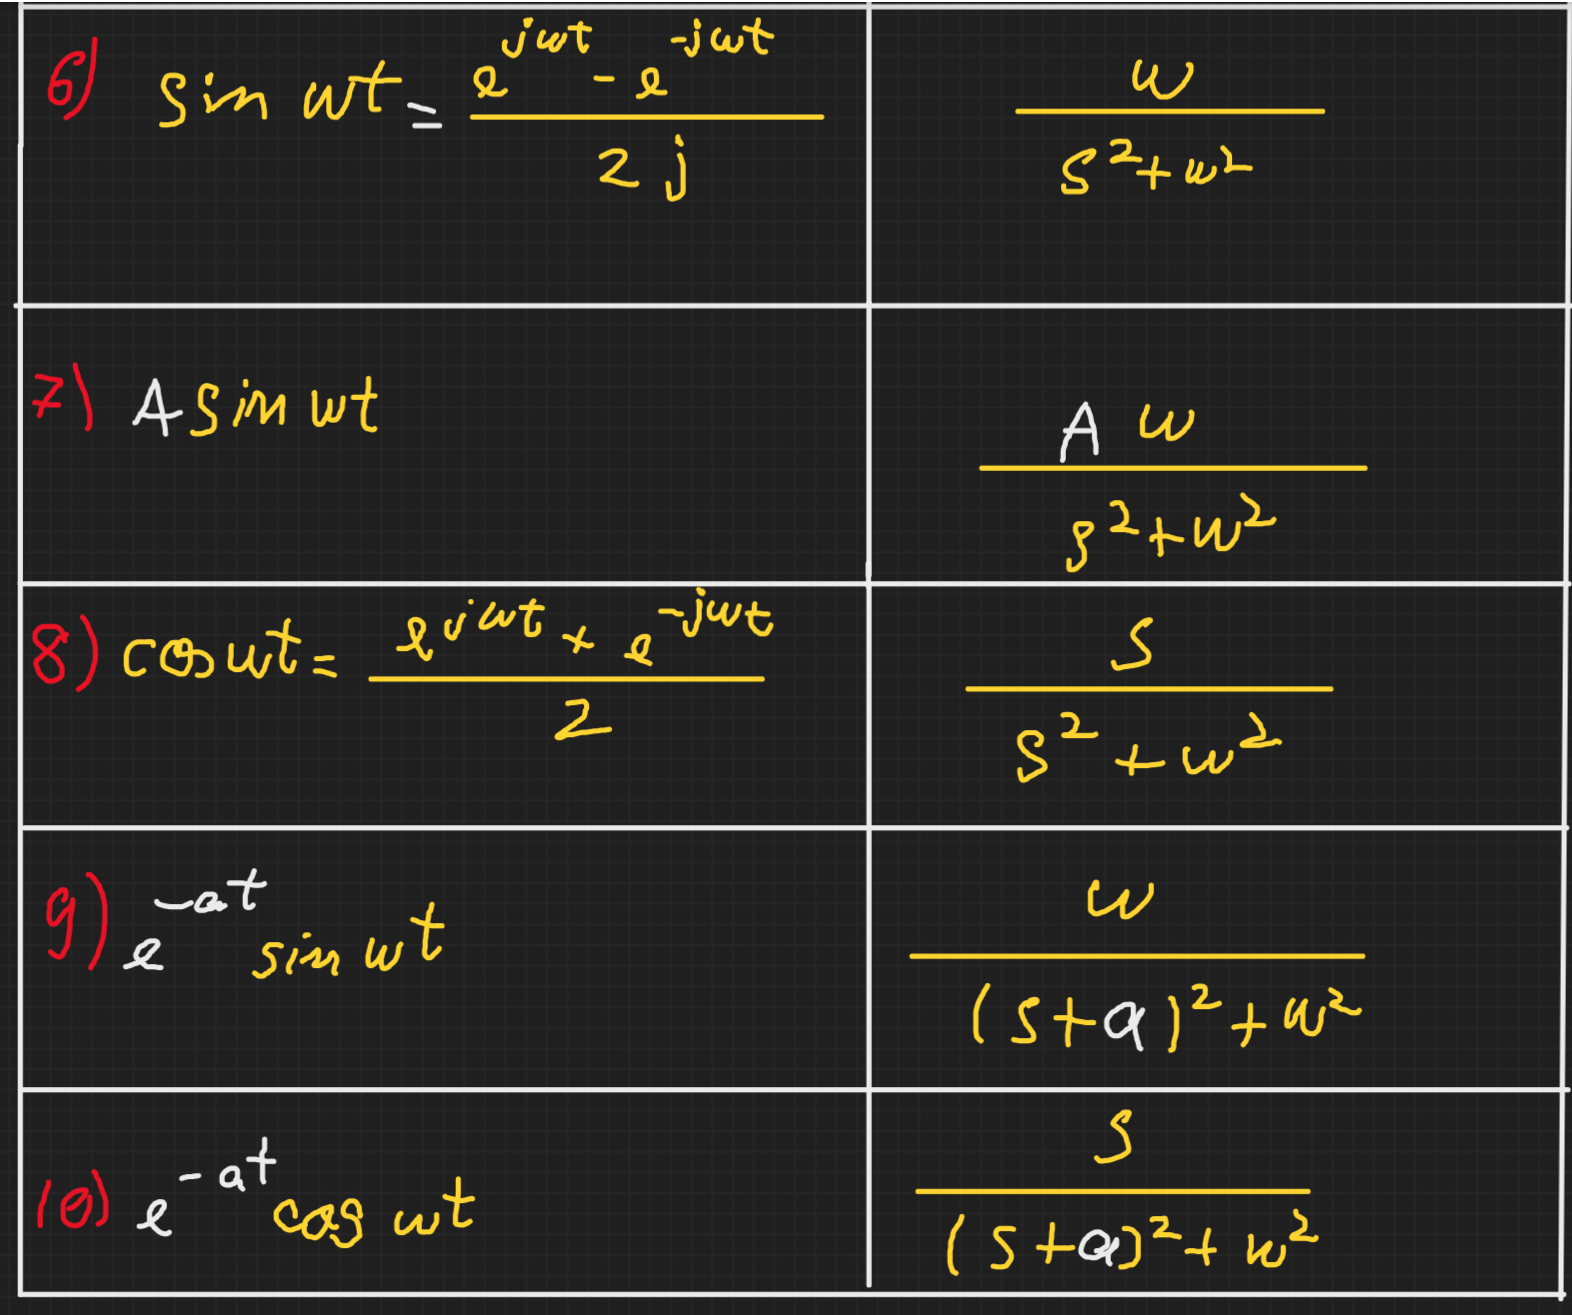 6) sin ωt = (e^{jωt} - e^{-jωt}) / 2j
ω / (s²+ω²)
7) A sin ωt
Aω / (s²+ω²)
8) cos ωt = (e^{jωt} + e^{-jωt}) / 2
s / (s²+ω²)
9) e^{-at} sin ωt
ω / ((s+a)²+ω²)
10) e^{-at} cos ωt
s / ((s+a)²+ω²)